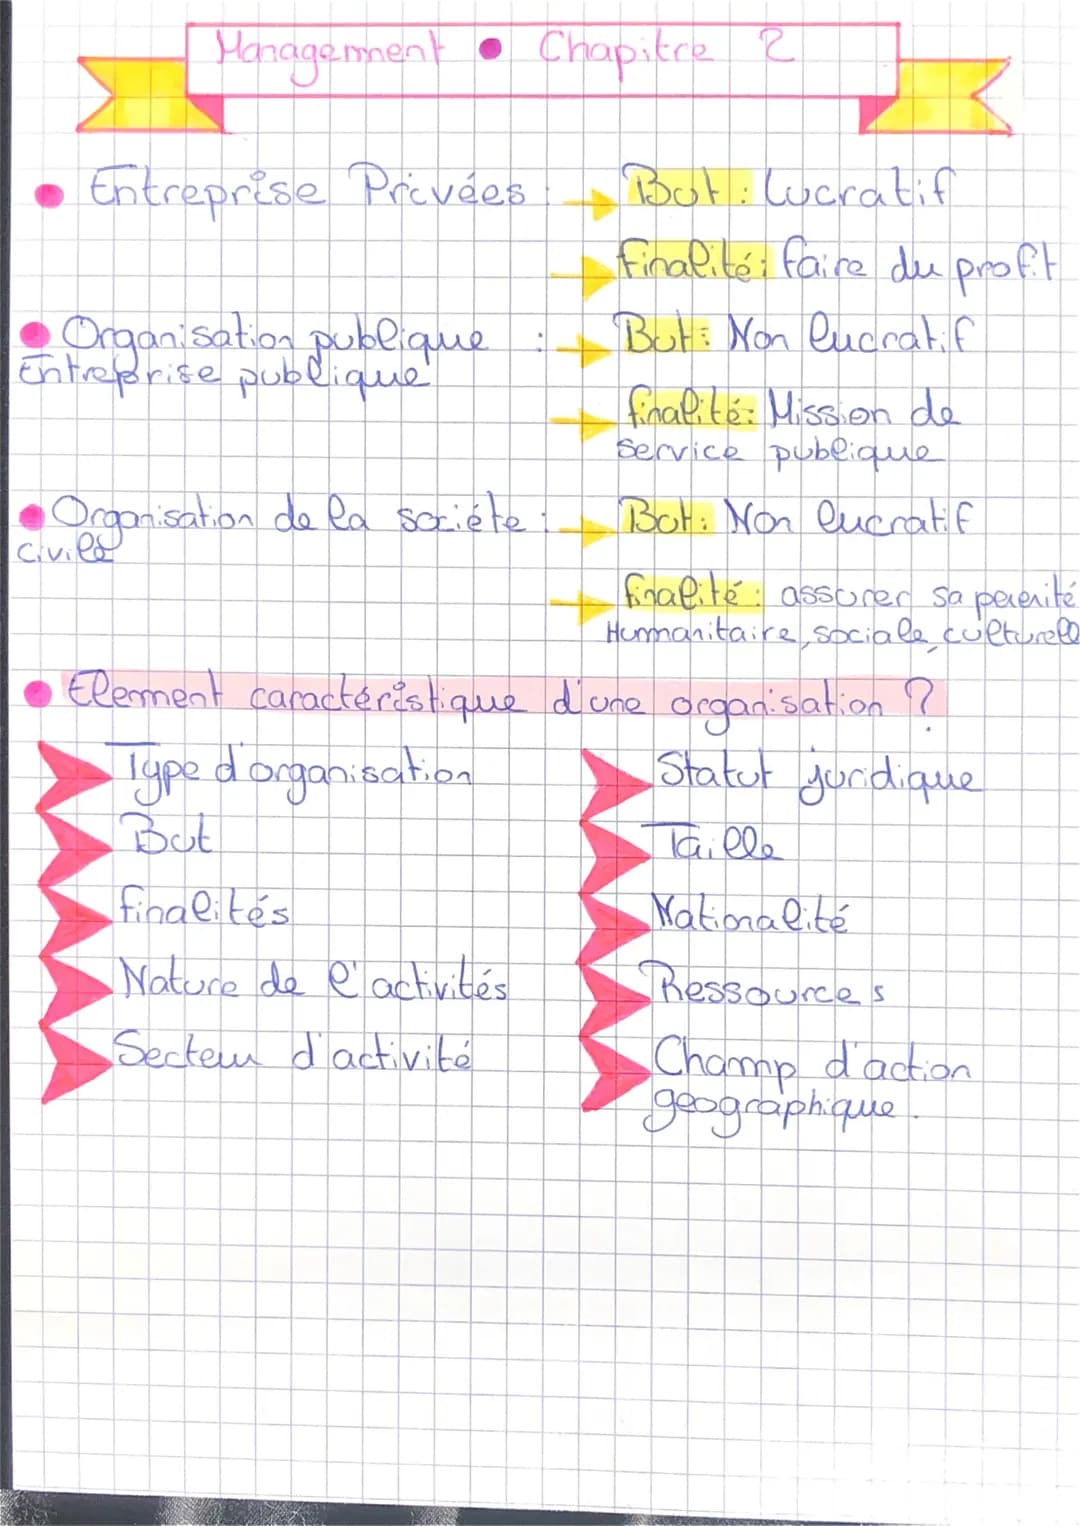 Management • Chapitre 2
• Entreprise Privées : But : lucratif
finalité : faire du profit
• Organisation publique : But : Non lucratif
Entreprise publique
finalité : Mission de
Service publique
• Organisation de la sociéte : But : Non lucratif
Civile
finalité : assurer sa perenité
Humanitaire, sociale, culturelle
• Element caractéristique d'une organisation ?
Type d'organisation
But
finalités
Nature de l'activités
Secteur d'activité
Statut juridique
Taille
Nationalité
Ressources
Champ d'action
geographique.